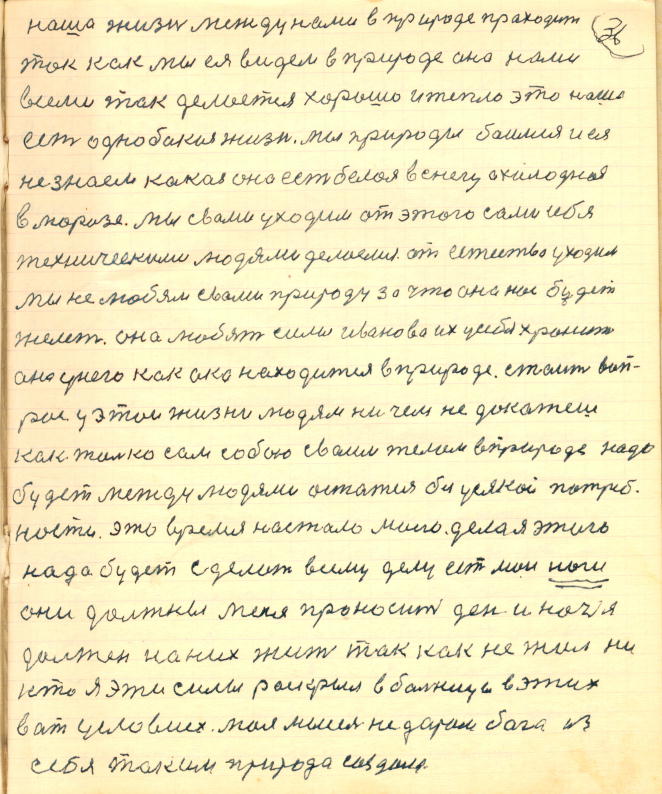 36
наша жизн между нами в природе праходит
так как мы ея видем в природе она нами
всеми так делается хорошо и тепло это наша
ест однобакая жизн. мы природы баимся и ея
незнаем какая она ест белоя в снегу ахалодная
в морозе. мы свами уходим от этого сами себя
техническими людями делоем. от естества уходим
мы не любям свами природу за что она нас будет
желет. она любят силы иванова их усебя хронит
она унего как ока находится в природе. стаит воп-
рос у этои жизни людям ни чем не докажеш
как. толко сам собою своим телом в природе надо
будет между людями остатся без усякой потреб.
ности. это время настало моего. дела я этого
нада будет сделат всему делу ест мои ноги
они должны меня праносит ден и ноч я
должен на них жит так как не жил ни
кто я эти силы раскрыл в болницы в этих
вот условиех. моя мысля недаром бога из
себя таким природа создала.